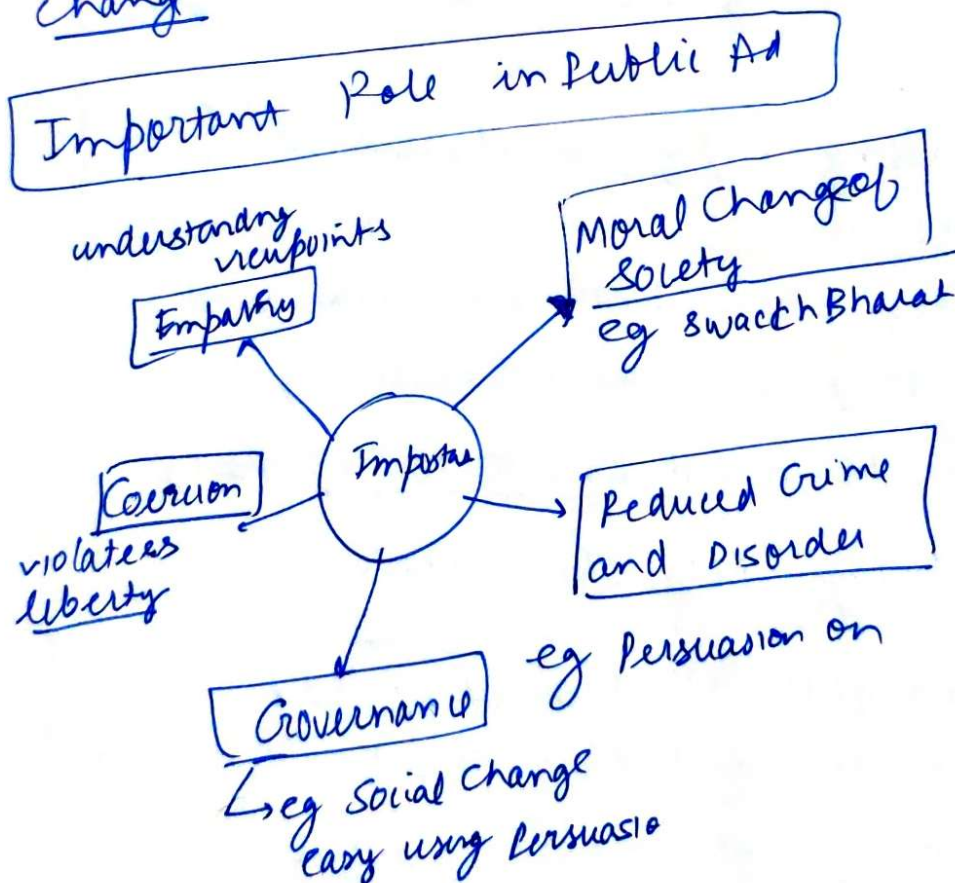 Chang
Important Role in Public Ad
understandng
viewpoints
Empathy
Moral Change of
Society
eg Swacch Bharat
Importae
Coercion
violatess
liberty
Reduced Crime
and Disorder
eg Persuasion on
Governance
eg Social Change
easy using Persuasio